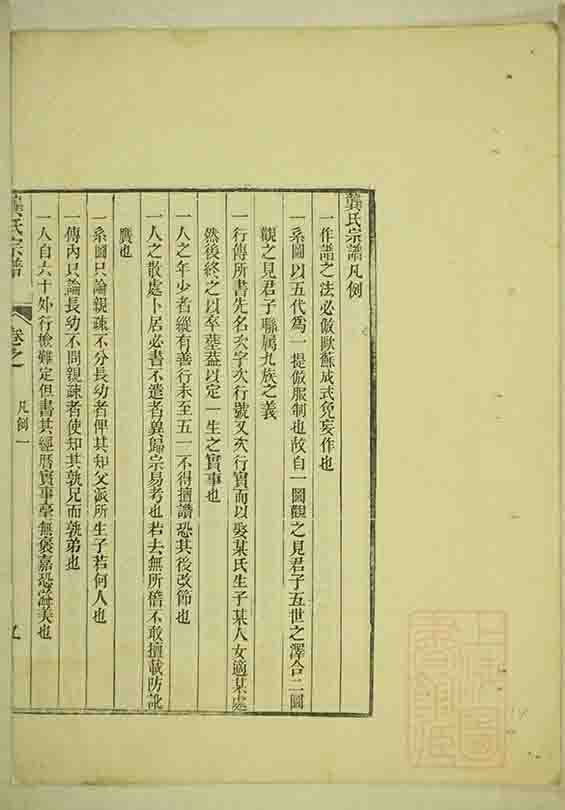 龔氏宗譜凡例
一作譜之法必倣歐蘇成式免妄作也
一系圖以五代爲一提倣服制也故自一圖觀之見君子五世之澤合二圖
觀之見君子聯属九族之義
一行傳所書先名次字次行號又次行實而以娶某氏生子某人女適某處
然後終之以卒塟葢以定一生之實事也
一人之年少者縱有善行未至五一不得擅讚恐其後改節也
一人之散處卜居必書不遺者異歸宗易考也若去無所稽不敢擅載防訛
贋也
一系圖只論親疎不分長幼者俾其知父派所生子若何人也
一傳內只論長幼不問親疎者使知其孰兄而孰弟也
一人自六十外行檢難定但書其經曆實事毫無褒嘉恐溢美也
龔氏宗譜
卷之
凡例一
上海圖書館藏